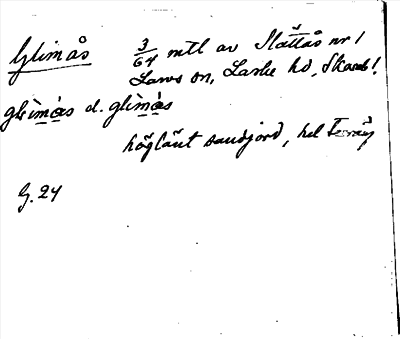 Glimås 3/64 mtl av Slättås nr 1
Laws sn, Laske hd, Skarab!
glìmås d. glìmås
höglänt sandjord, hel
G. 24